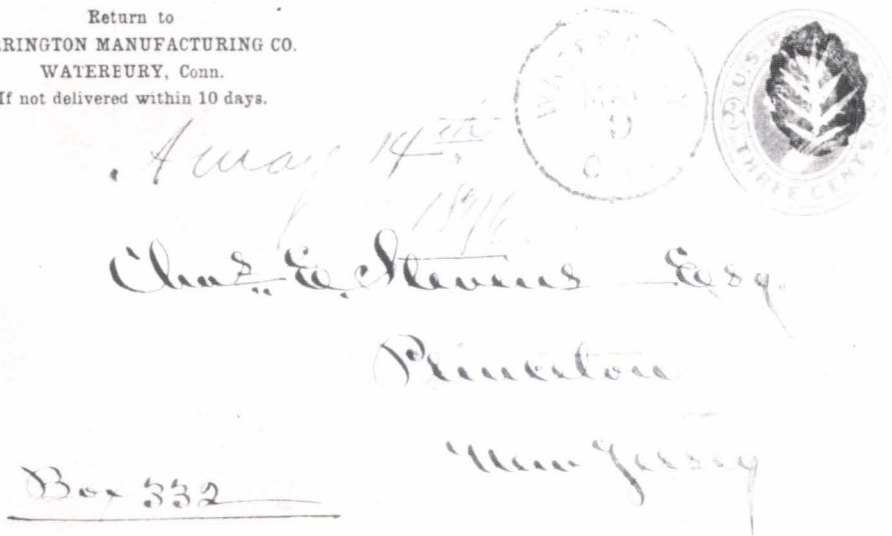 Return to
RRINGTON MANUFACTURING CO.
WATERBURY, Conn.
If not delivered within 10 days.
U.S. PO
THREE CENTS
WATERB
MA
9
14th
1876
Chas. E. Stevens Esq.
Princeton
New Jersey
Box 332